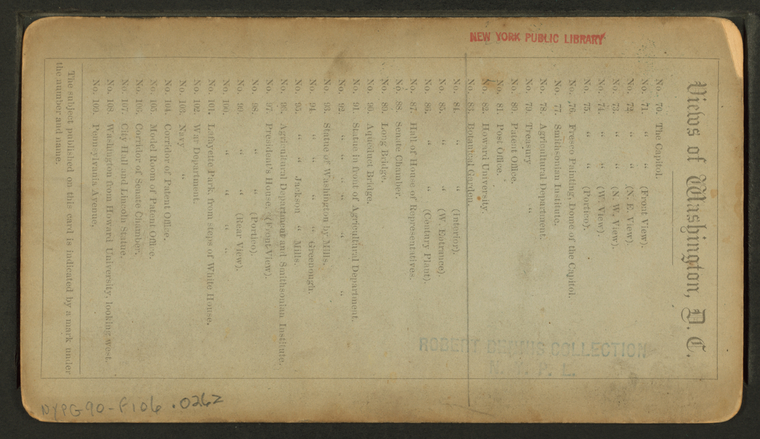 NEW YORK PUBLIC LIBRARY
Views of Washington, D. C.
No. 70. The Capitol.
No. 71. " " (Front View).
No. 72. " " (N. E. View).
No. 73. " " (N. W. View).
No. 74. " " (W. View).
No. 75. " " (Portico).
No. 76. Fresco Painting, Dome of the Capitol.
No. 77. Smithsonian Institute.
No. 78. Agricultural Department.
No. 79. Treasury "
No. 80. Patent Office.
No. 81. Post Office.
No. 82. Howard University.
No. 83. Botanical Garden.
No. 84. " " (Interior).
No. 85. " " (W. Entrance).
No. 86. " " (Century Plant).
No. 87. Hall of House of Representatives.
No. 88. Senate Chamber.
No. 89. Long Bridge.
No. 90. Aqueduct Bridge.
No. 91. Statue in front of Agricultural Department.
No. 92. " " " " "
No. 93. Statue of Washington by Mills.
No. 94. " " " " Greenough.
No. 95. " " Jackson " Mills.
No. 96. Agricultural Department and Smithsonian Institute.
No. 97. President's House. (Front View).
No. 98. " " (Portico).
No. 99. " " (Rear View).
No. 100. " " " "
No. 101. Lafayette Park, from steps of White House.
No. 102. War Department.
No. 103. Navy "
No. 104. Corridor of Patent Office.
No. 105. Model Room of Patent Office.
No. 106. Corridor of Senate Chamber.
No. 107. City Hall and Lincoln Statue.
No. 108. Washington from Howard University, looking west.
No. 109. Pennsylvania Avenue.
The subject published on this card is indicated by a mark under
the number and name.
ROBERT DENNIS COLLECTION
N. Y. P. L.
NYPG90-F106 .0262